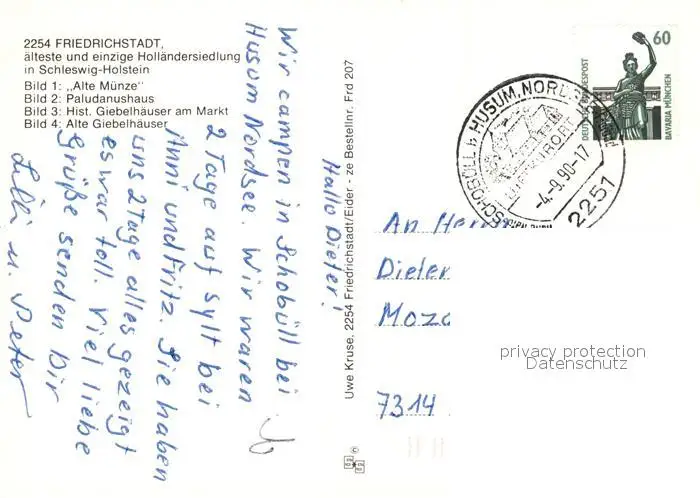 2254 FRIEDRICHSTADT,
älteste und einzige Holländersiedlung
in Schleswig-Holstein
Bild 1: „Alte Münze"
Bild 2: Paludanushaus
Bild 3: Hist. Giebelhäuser am Markt
Bild 4: Alte Giebelhäuser
Hallo Dieter!
Wir campen in Schobüll bei
Husum Nordsee Wir waren
2 Tage auf Sylt bei
Anni und Fritz. Sie haben
uns 2 Tage alles gezeigt
es war toll. Viel liebe
Grüße senden Dir
Lilli u. Peter
Uwe Kruse, 2254 Friedrichstadt/Eider - ze Bestellnr. Frd 207
©
60
DEUTSCHE BUNDESPOST
BAVARIA MÜNCHEN
SCHOBÜLL b HUSUM, NORDSEE
LUFTKURORT
-4.-9.90-17
2251
An Herrn
Dieter
Moza
7314
privacy protection
Datenschutz